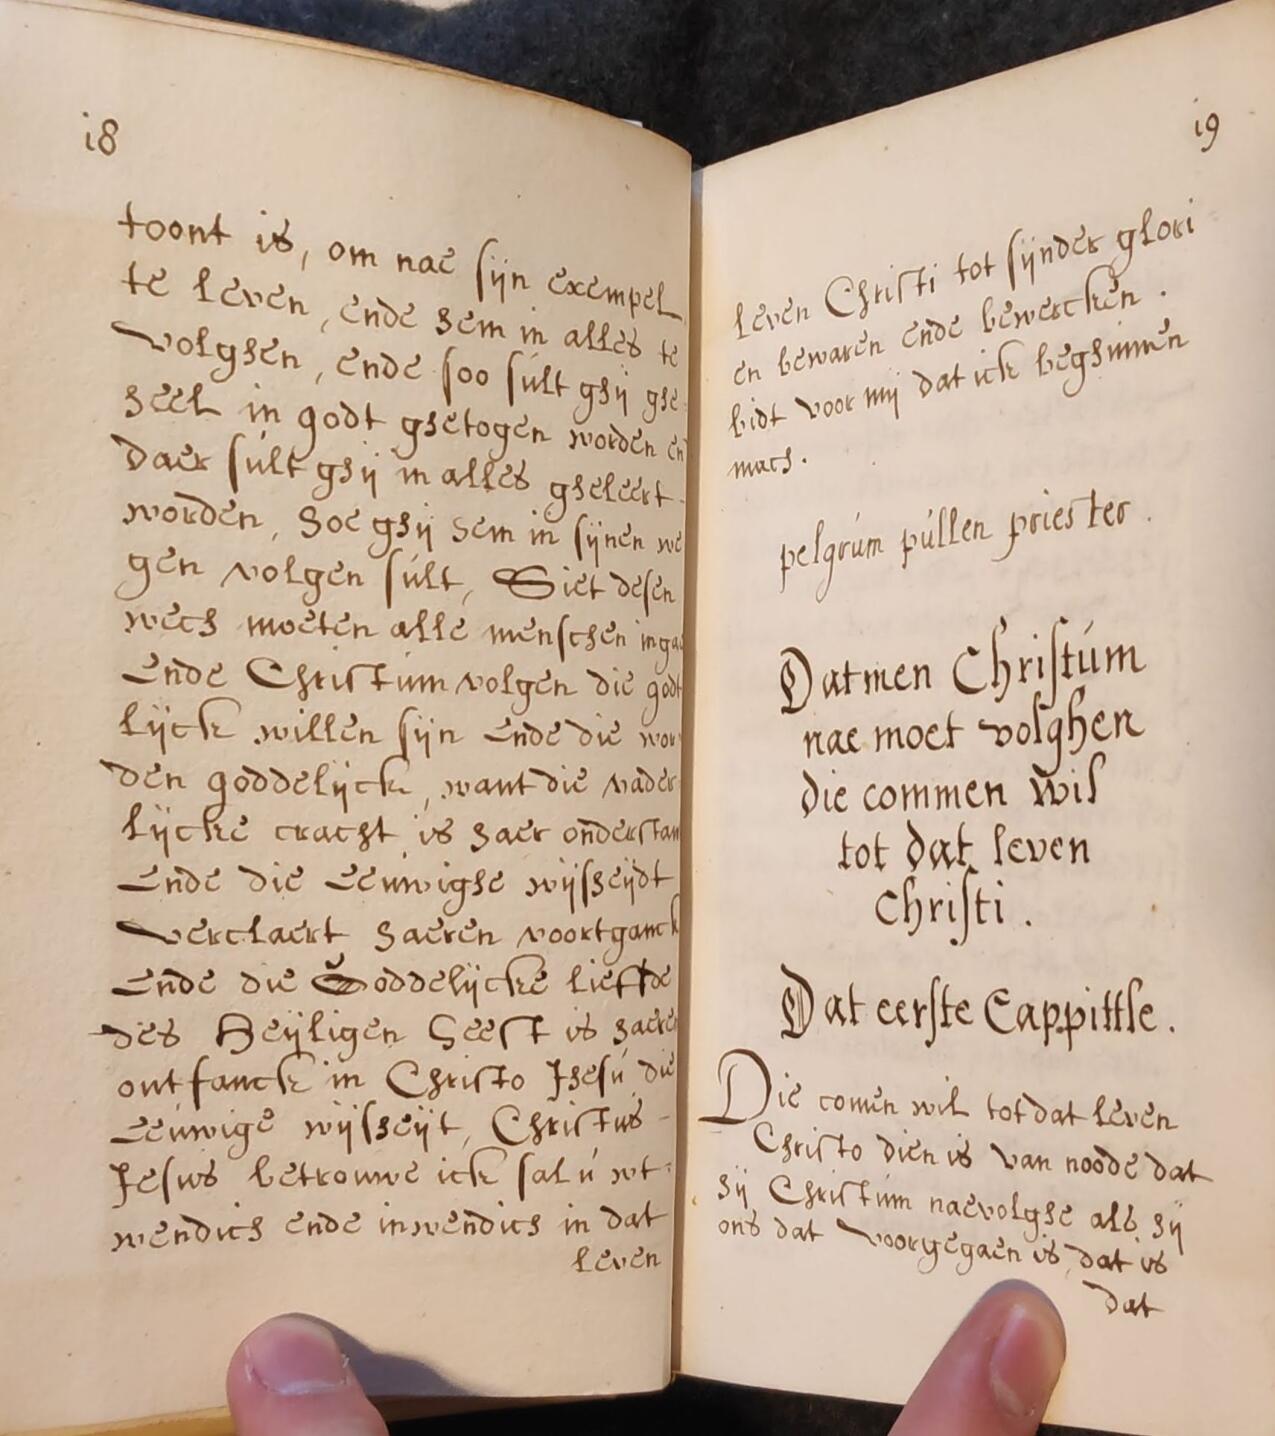 i8
toont is, om nae sijn exempel
te leven, ende hem in alles te
volghen, ende soo sült ghij ghe
heel in godt ghetogen worden en
daer sült ghij in alles gheleert
worden, hoe ghij hem in sijnen we
gen volgen sült, Siet desen
wech moeten alle menschen
Ende Christúm volgen die godt
lijck willen sijn Ende die wor
den goddelijck, want die vader
lijcke cracht is haer onderstan
Ende die Eeuwighe wijsheijdt
verclaert haeren voortganck
Ende die Goddelijcke liefde
des Heijligen Geest is haeren
ontfanck in Christo Jhesú die
Eeúwige wijsheijt, Christus
Jesus betrouwe ick sal ú wt
wendich ende inwendich in dat
leven
i9
leven Christi tot sijnder glori
en bewaren ende bewercken.
bidt voor mij dat ick beghinnen
mach.
pelgrúm púllen priester.
Datmen Christúm
nae moet volghen
die commen wil
tot dat leven
Christi.
Dat eerste Cappittle.
Die comen wil tot dat leven
Christo dien is van noode dat
hij Christúm naevolghe als hij
ons dat voorgegaen is, dat is
dat